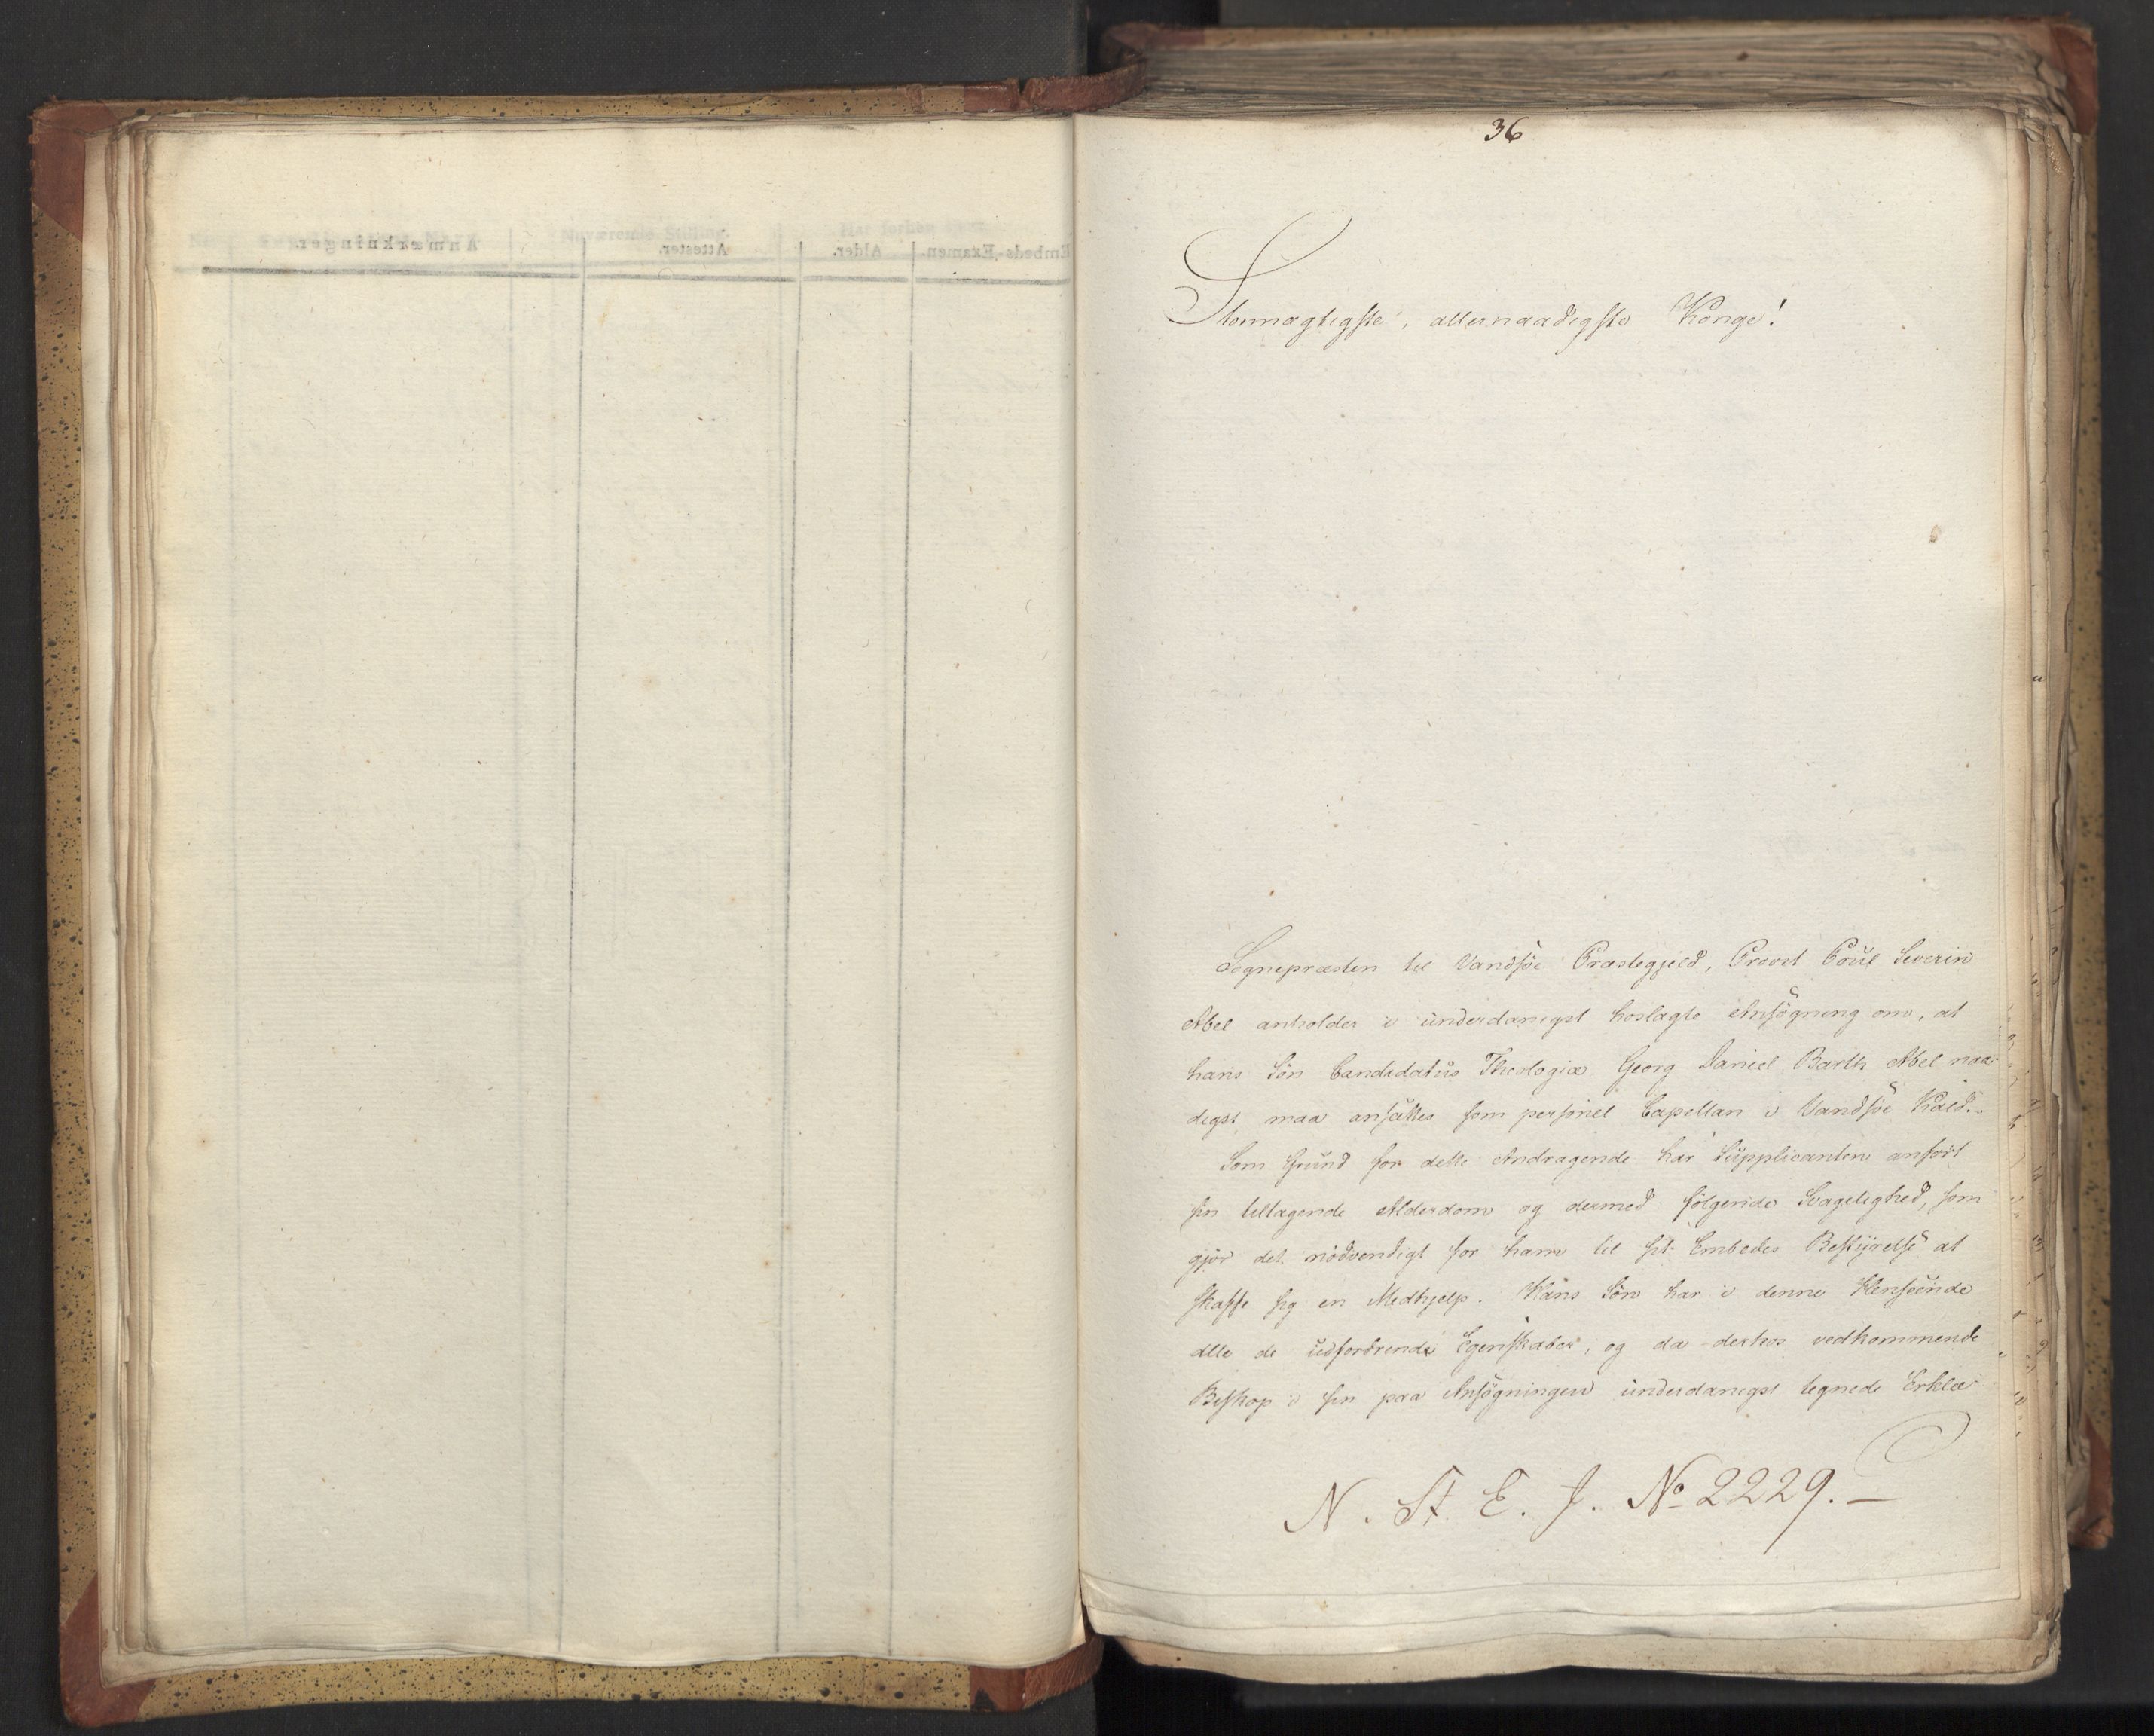 36
Stormægtigste, allernaadigste Konge!
Sognepræsten til Vandsöe Præstegjeld, Provst Poul Severin
Abel anholder i underdanigst hoslagte Ansögning om, at
hans Sön Candidatus Theologiæ Georg Daniel Barth Abel naa-
digst maa ansættes som personel Capellan i Vandsöe Kald.-
Som Grund for dette Andragende har Supplicanten anfört
sin tiltagende Alderdom og dermed fölgende Svagelighed, som
gjör det nödvendigt for ham til sit Embedes Bestyrelse at
skaffe sig en Medhjelp. Hans Sön har i denne Henseende
alle de udfordrende Egenskaber, og da derhos vedkommende
Biskop i sin paa Ansögningen underdanigst tegnede Erklæ-
N. St. E. J. No 2229.-
Anmærkninger.
Attester.
Alder.
Embeds-Examen.
Nuværende Stilling.